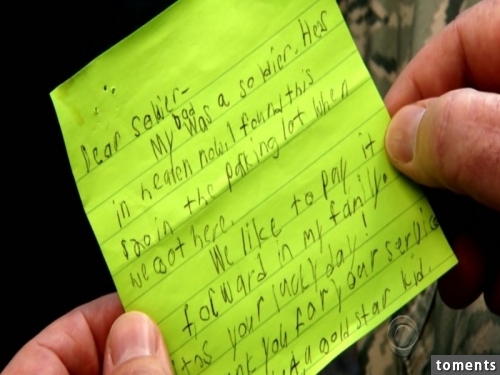 Dear soldier-
My dad was a soldier. He's
in heaven now. I found this
$20 in this parking lot when
we got here.
We like to pay it
forward in my family.
It's your lucky day!
Thank you for your service.
a gold star kid.
toments